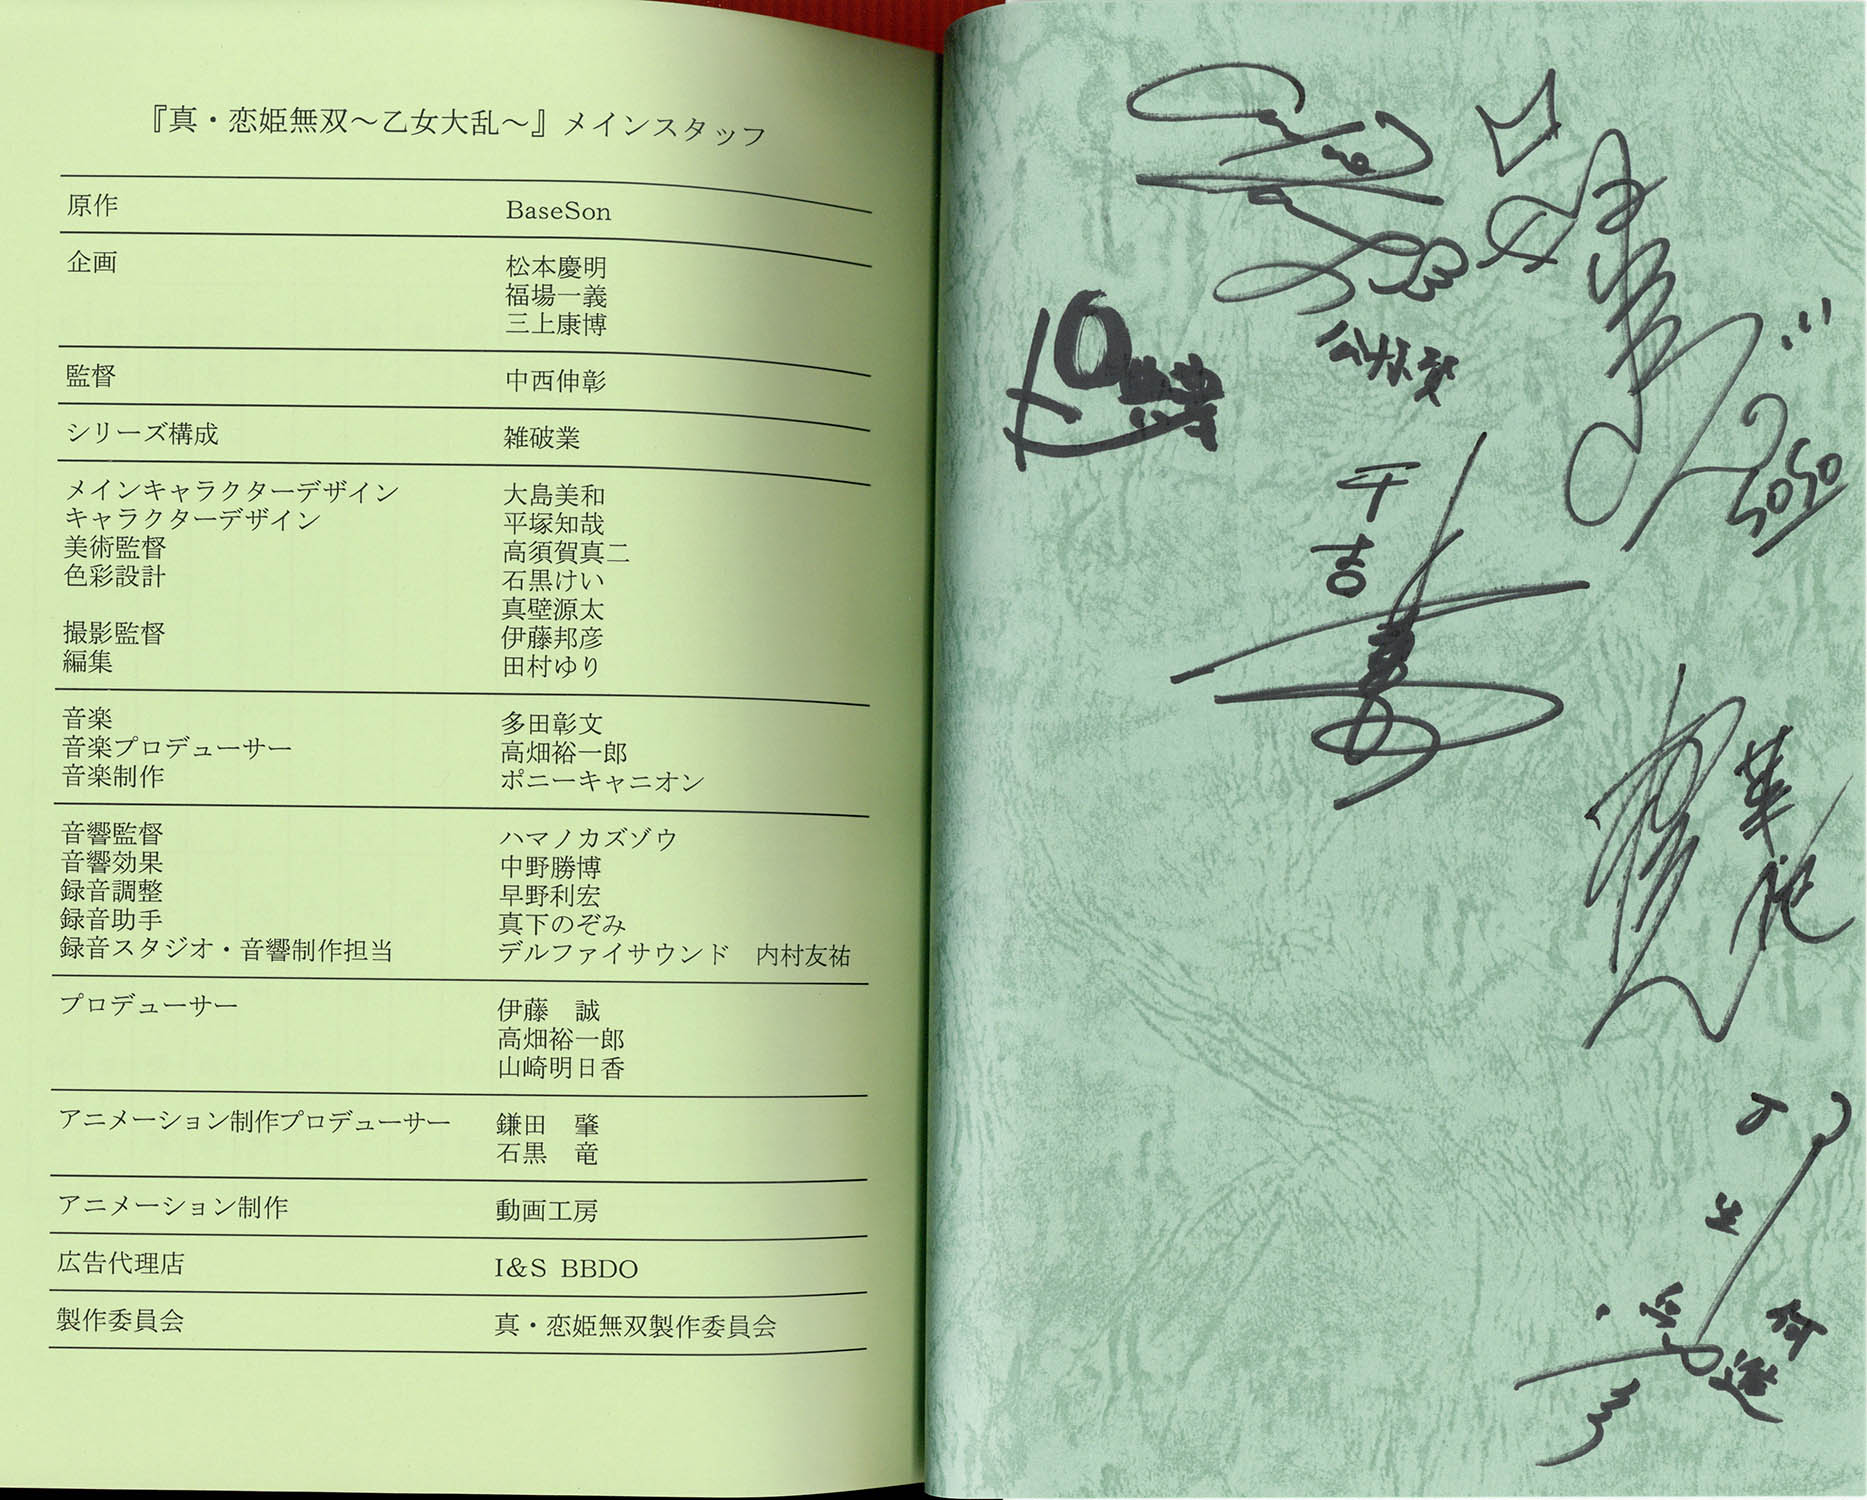 『真・恋姫無双～乙女大乱～』メインスタッフ
原作 BaseSon
企画 松本慶明
福場一義
三上康博
監督 中西伸彰
シリーズ構成 雑破業
メインキャラクターデザイン 大島美和
キャラクターデザイン 平塚知哉
美術監督 高須賀真二
色彩設計 石黒けい
真壁源太
撮影監督 伊藤邦彦
編集 田村ゆり
音楽 多田彰文
音楽プロデューサー 高畑裕一郎
音楽制作 ポニーキャニオン
音響監督 ハマノカズゾウ
音響効果 中野勝博
録音調整 早野利宏
録音助手 真下のぞみ
録音スタジオ・音響制作担当 デルファイサウンド 内村友祐
プロデューサー 伊藤 誠
高畑裕一郎
山崎明日香
アニメーション制作プロデューサー 鎌田 肇
石黒 竜
アニメーション制作 動画工房
広告代理店 I&S BBDO
製作委員会 真・恋姫無双製作委員会
于吉
華佗
何進